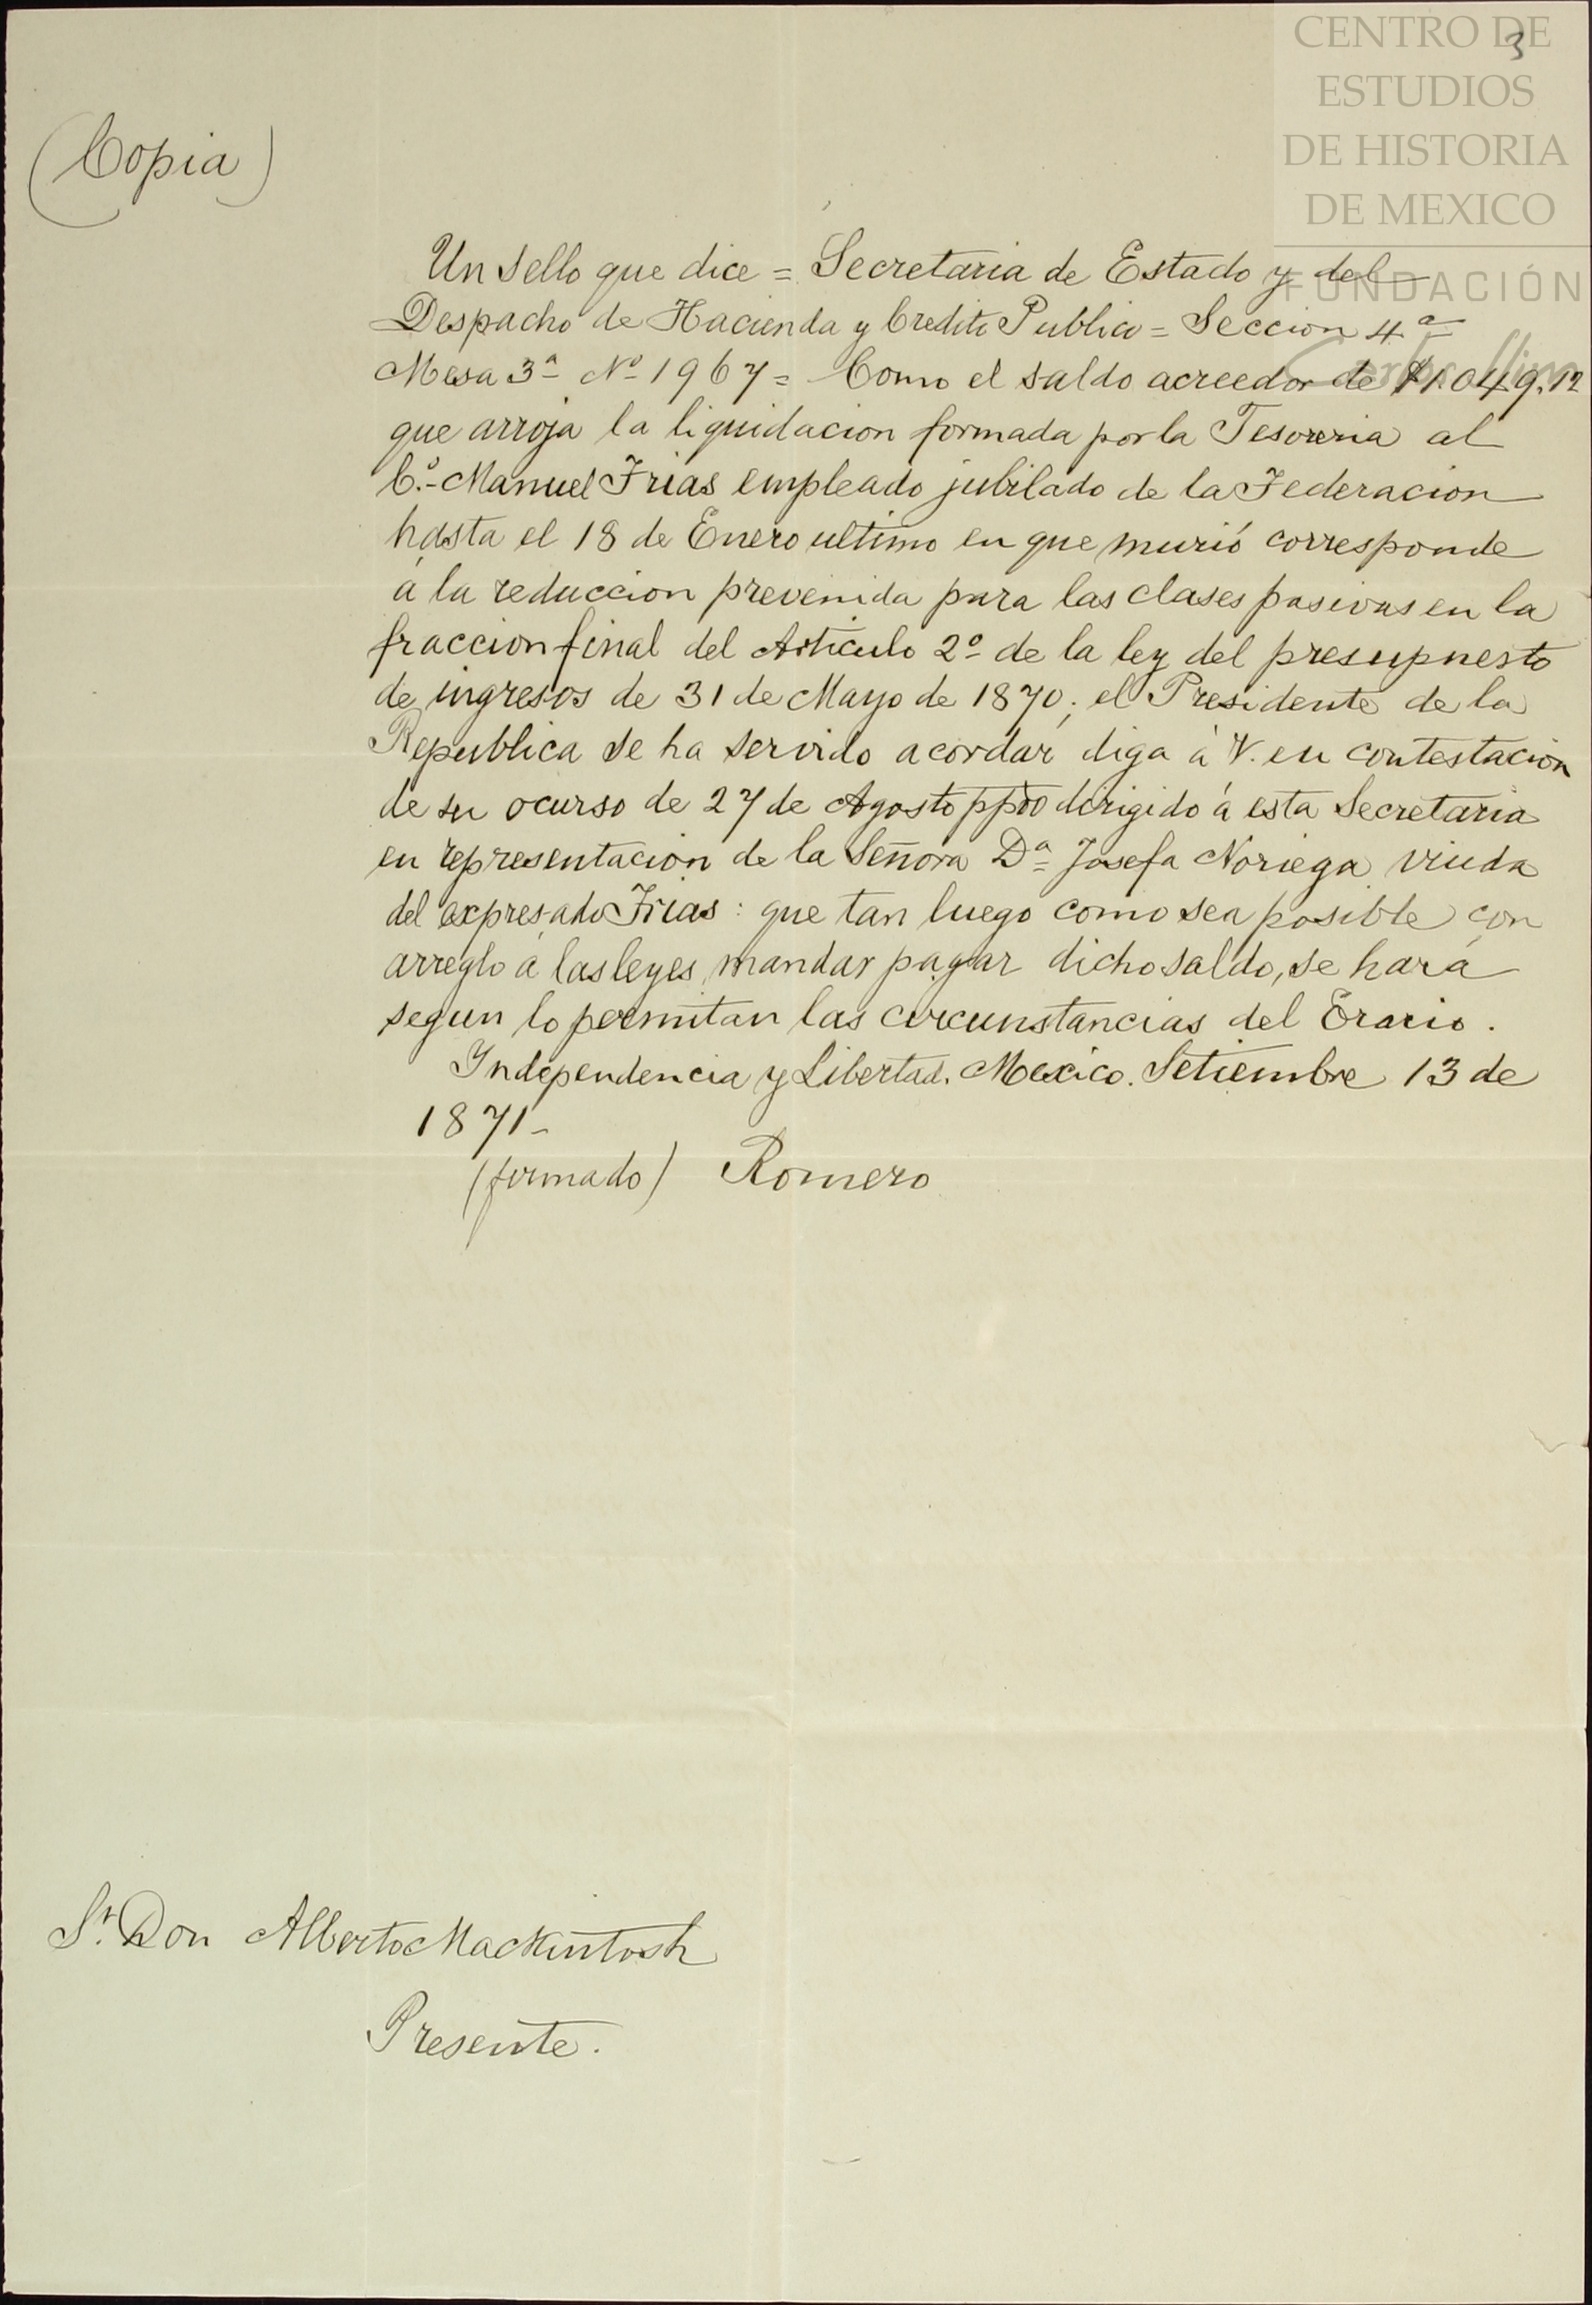 3
CENTRO DE
ESTUDIOS
DE HISTORIA
DE MEXICO
FUNDACIÓN
Carlos Slim
(Copia)
Un sello que dice = Secretaria de Estado y del
Despacho de Hacienda y Credito Publico = Seccion 4ª
Mesa 3ª Nº 1967 = Como el saldo acreedor de $1.049.12
que arroja la liquidacion formada por la Tesoreria al
C.º Manuel Frias empleado jubilado de la Federacion
hasta el 18 de Enero ultimo en que murió corresponde
á la reduccion prevenida para las clases pasivas en la
fraccion final del Articulo 2º de la ley del presupuesto
de ingresos de 31 de Mayo de 1870; el Presidente de la
Republica se ha servido acordar diga á V. en contestacion
de su ocurso de 27 de Agosto ppdo dirigido á esta Secretaria
en representacion de la Señora Dª Josefa Noriega viuda
del expresado Frias: que tan luego como sea posible con
arreglo á las leyes mandar pagar dicho saldo, se hará
segun lo permitan las circunstancias del Erario.
Independencia y Libertad. Mexico. Setiembre 13 de
1871-
(firmado) Romero
Sr. Don Alberto Mackintosh
Presente.